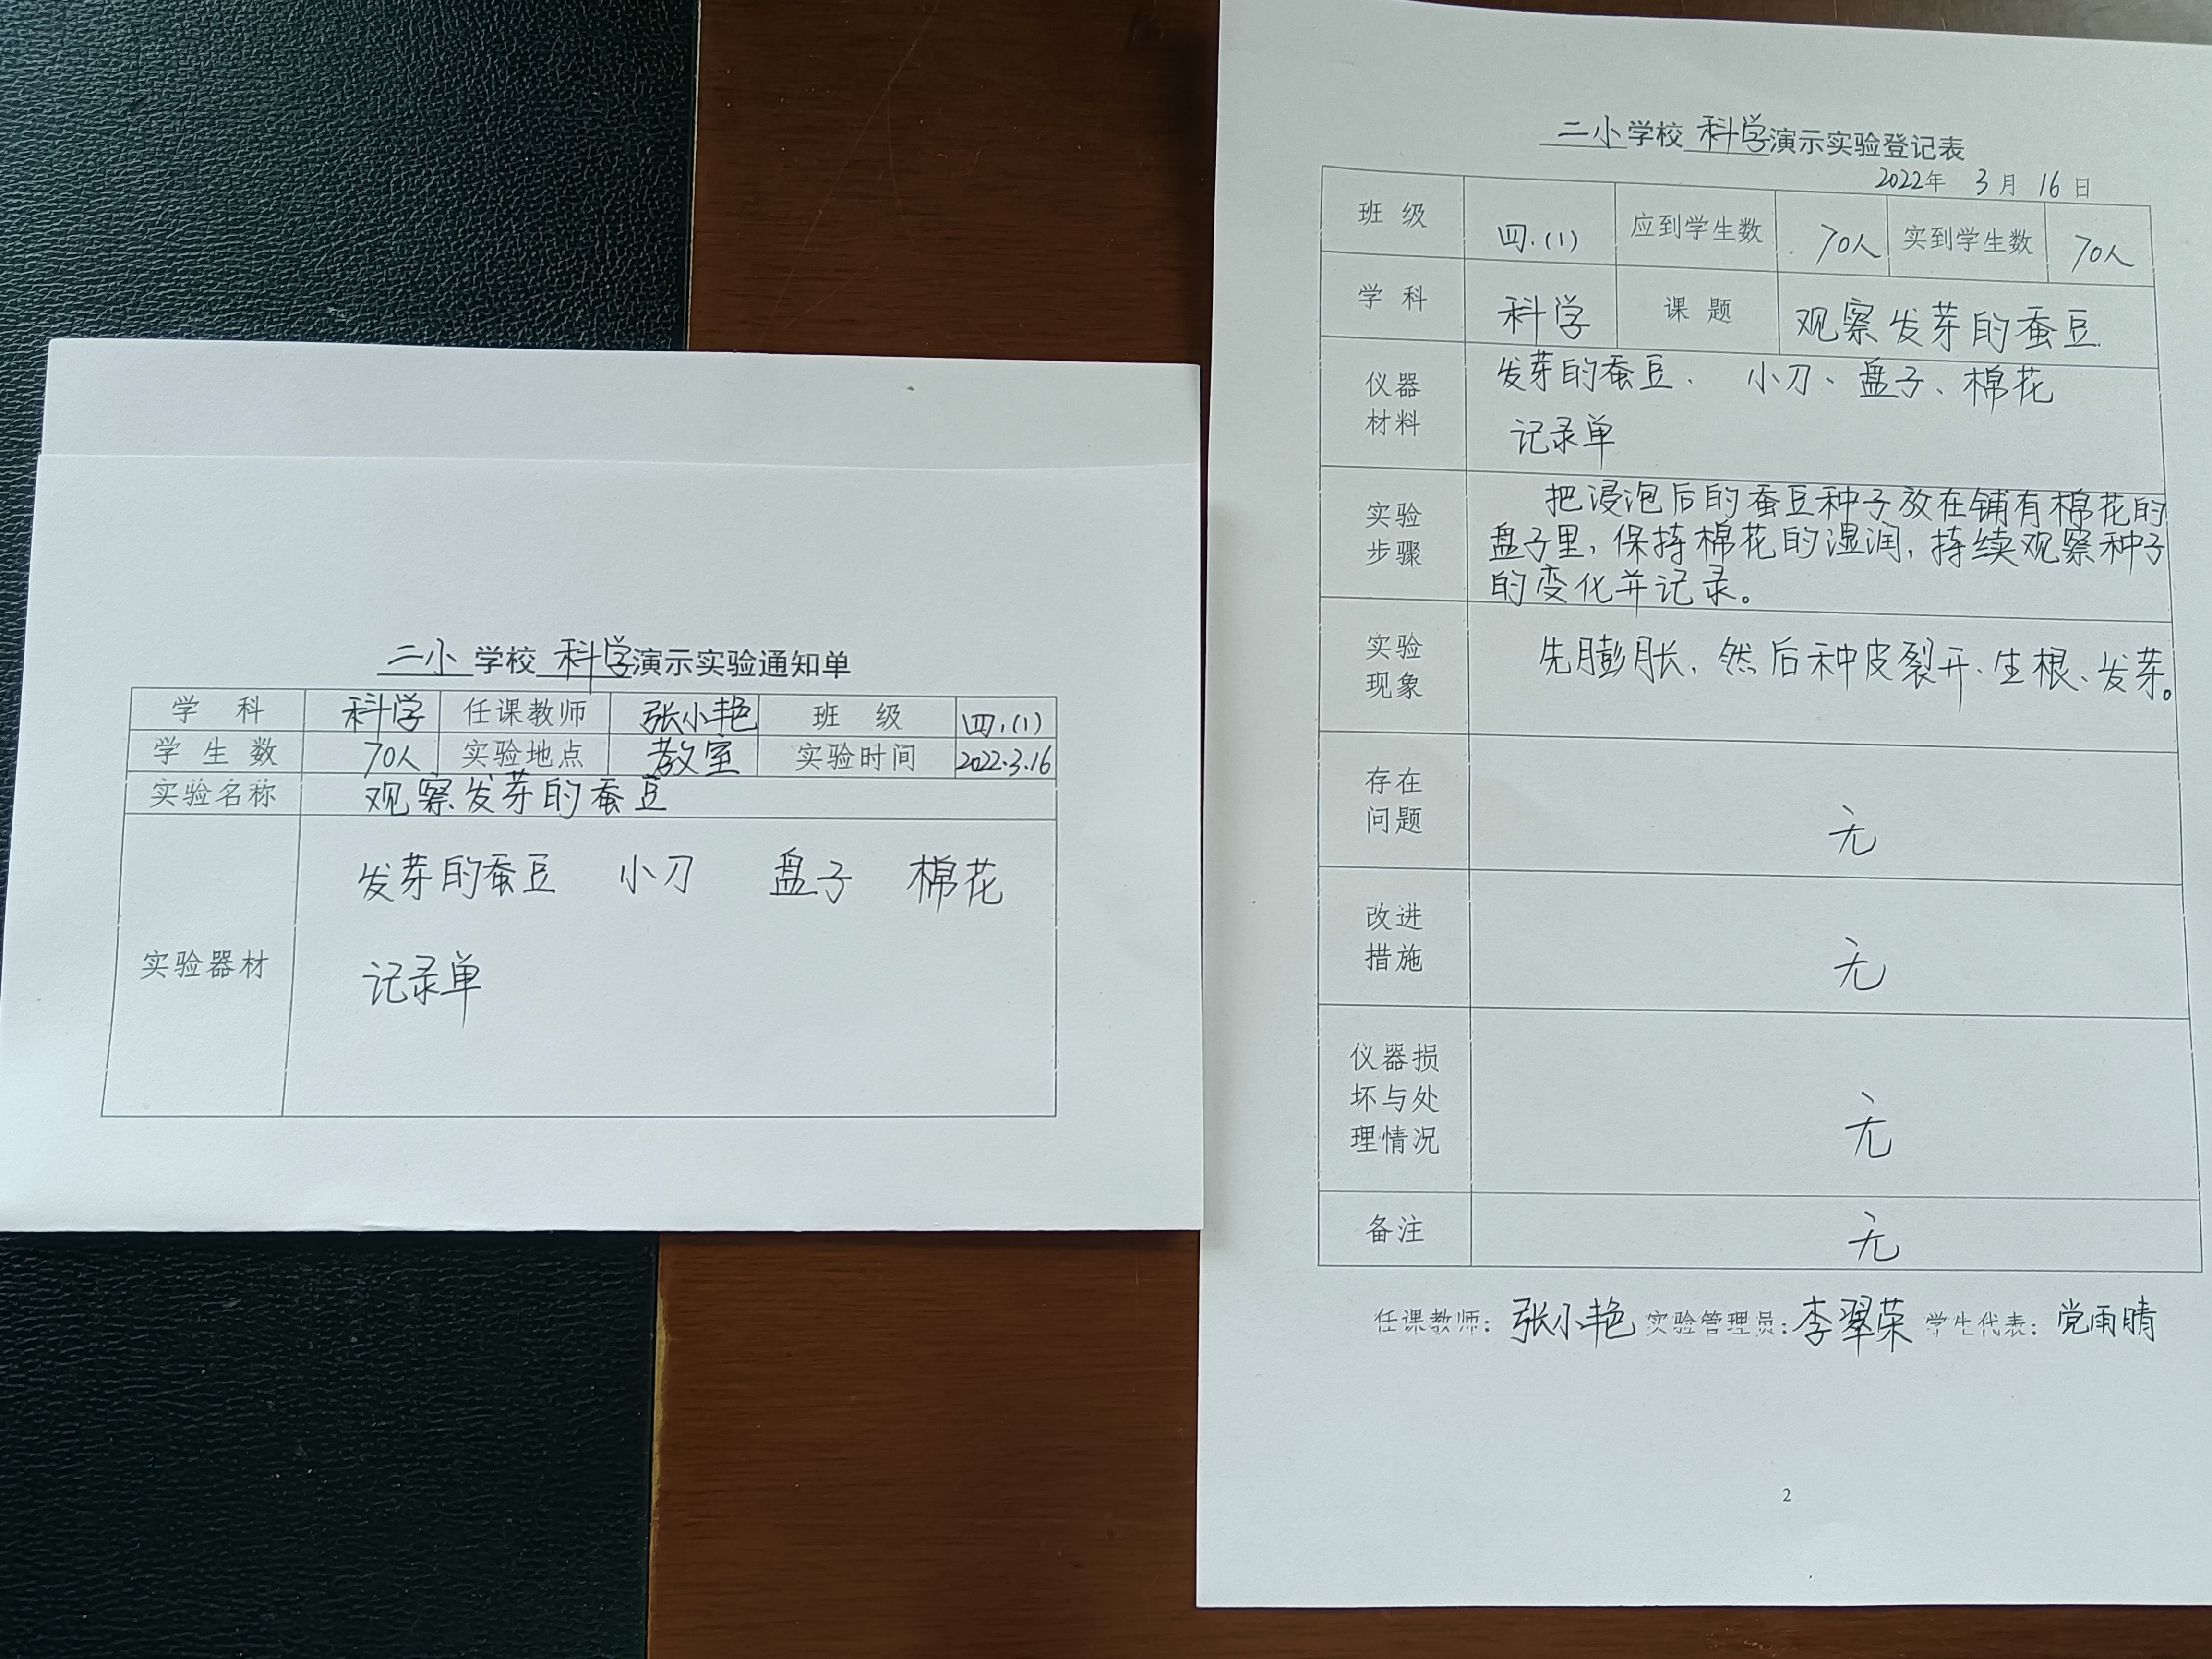 二小学校科学演示实验通知单
学科 科学 任课教师 张小艳 班级 四.(1)
学生数 70人 实验地点 教室 实验时间 2022.3.16
实验名称 观察发芽的蚕豆
发芽的蚕豆 小刀 盘子 棉花
实验器材
记录单
二小学校科学演示实验登记表
2022年 3月 16日
班级 四.(1) 应到学生数 70人 实到学生数 70人
学科 科学 课题 观察发芽的蚕豆
仪器
材料
发芽的蚕豆、小刀、盘子、棉花
记录单
实验
步骤
把浸泡后的蚕豆种子放在铺有棉花的
盘子里,保持棉花的湿润,持续观察种子
的变化并记录。
实验
现象
先膨胀,然后种皮裂开、生根、发芽。
存在
问题
无
改进
措施
无
仪器损
坏与处
理情况
无
备注 无
任课教师:张小艳 实验管理员:李翠荣 学生代表:党雨晴
2